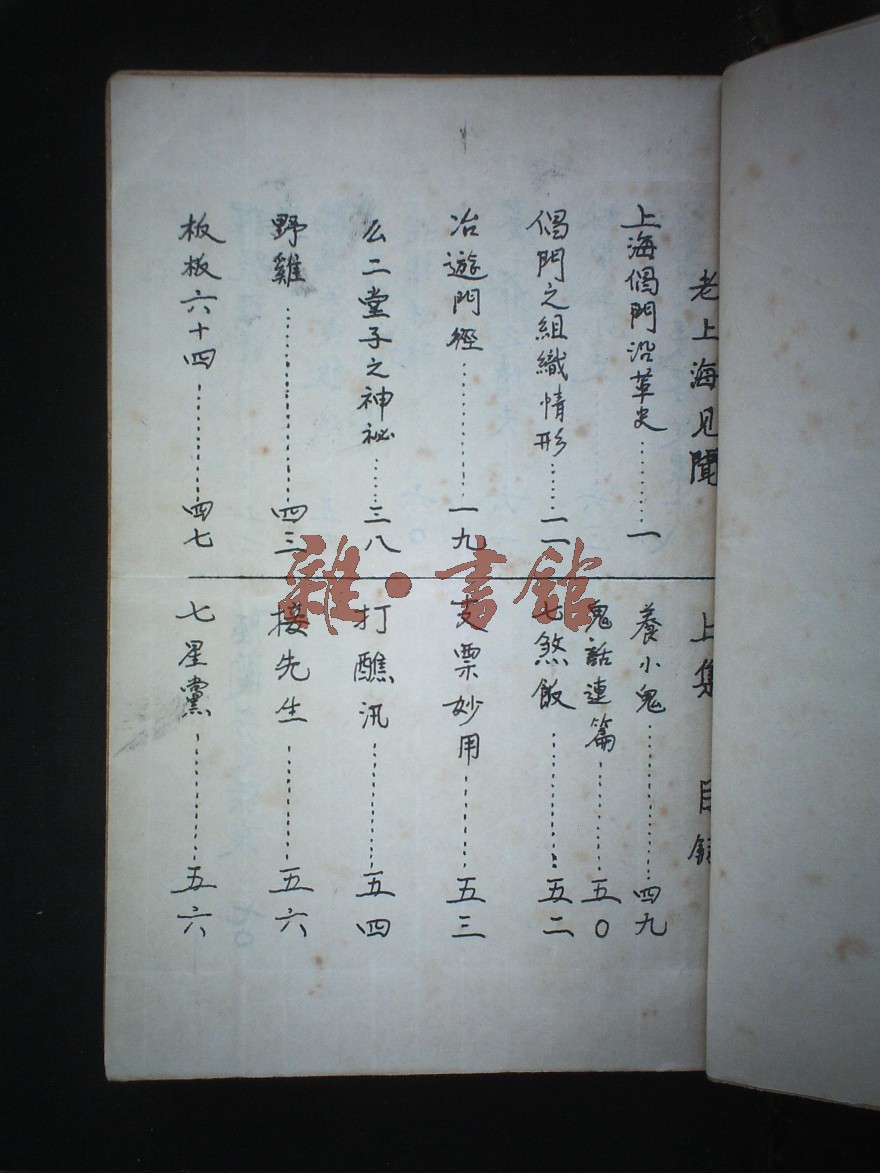 老上海見聞 上集 目錄
上海倡門沿革史………一
倡門之組織情形……一一
冶遊門徑………一九
么二堂子之神祕……三八
野雞………四三
板板六十四………四七
養小鬼………四九
鬼話連篇………五〇
七煞飯………五二
支票妙用………五三
打醮汛………五四
接先生………五六
七星黨………五六
雜·書館